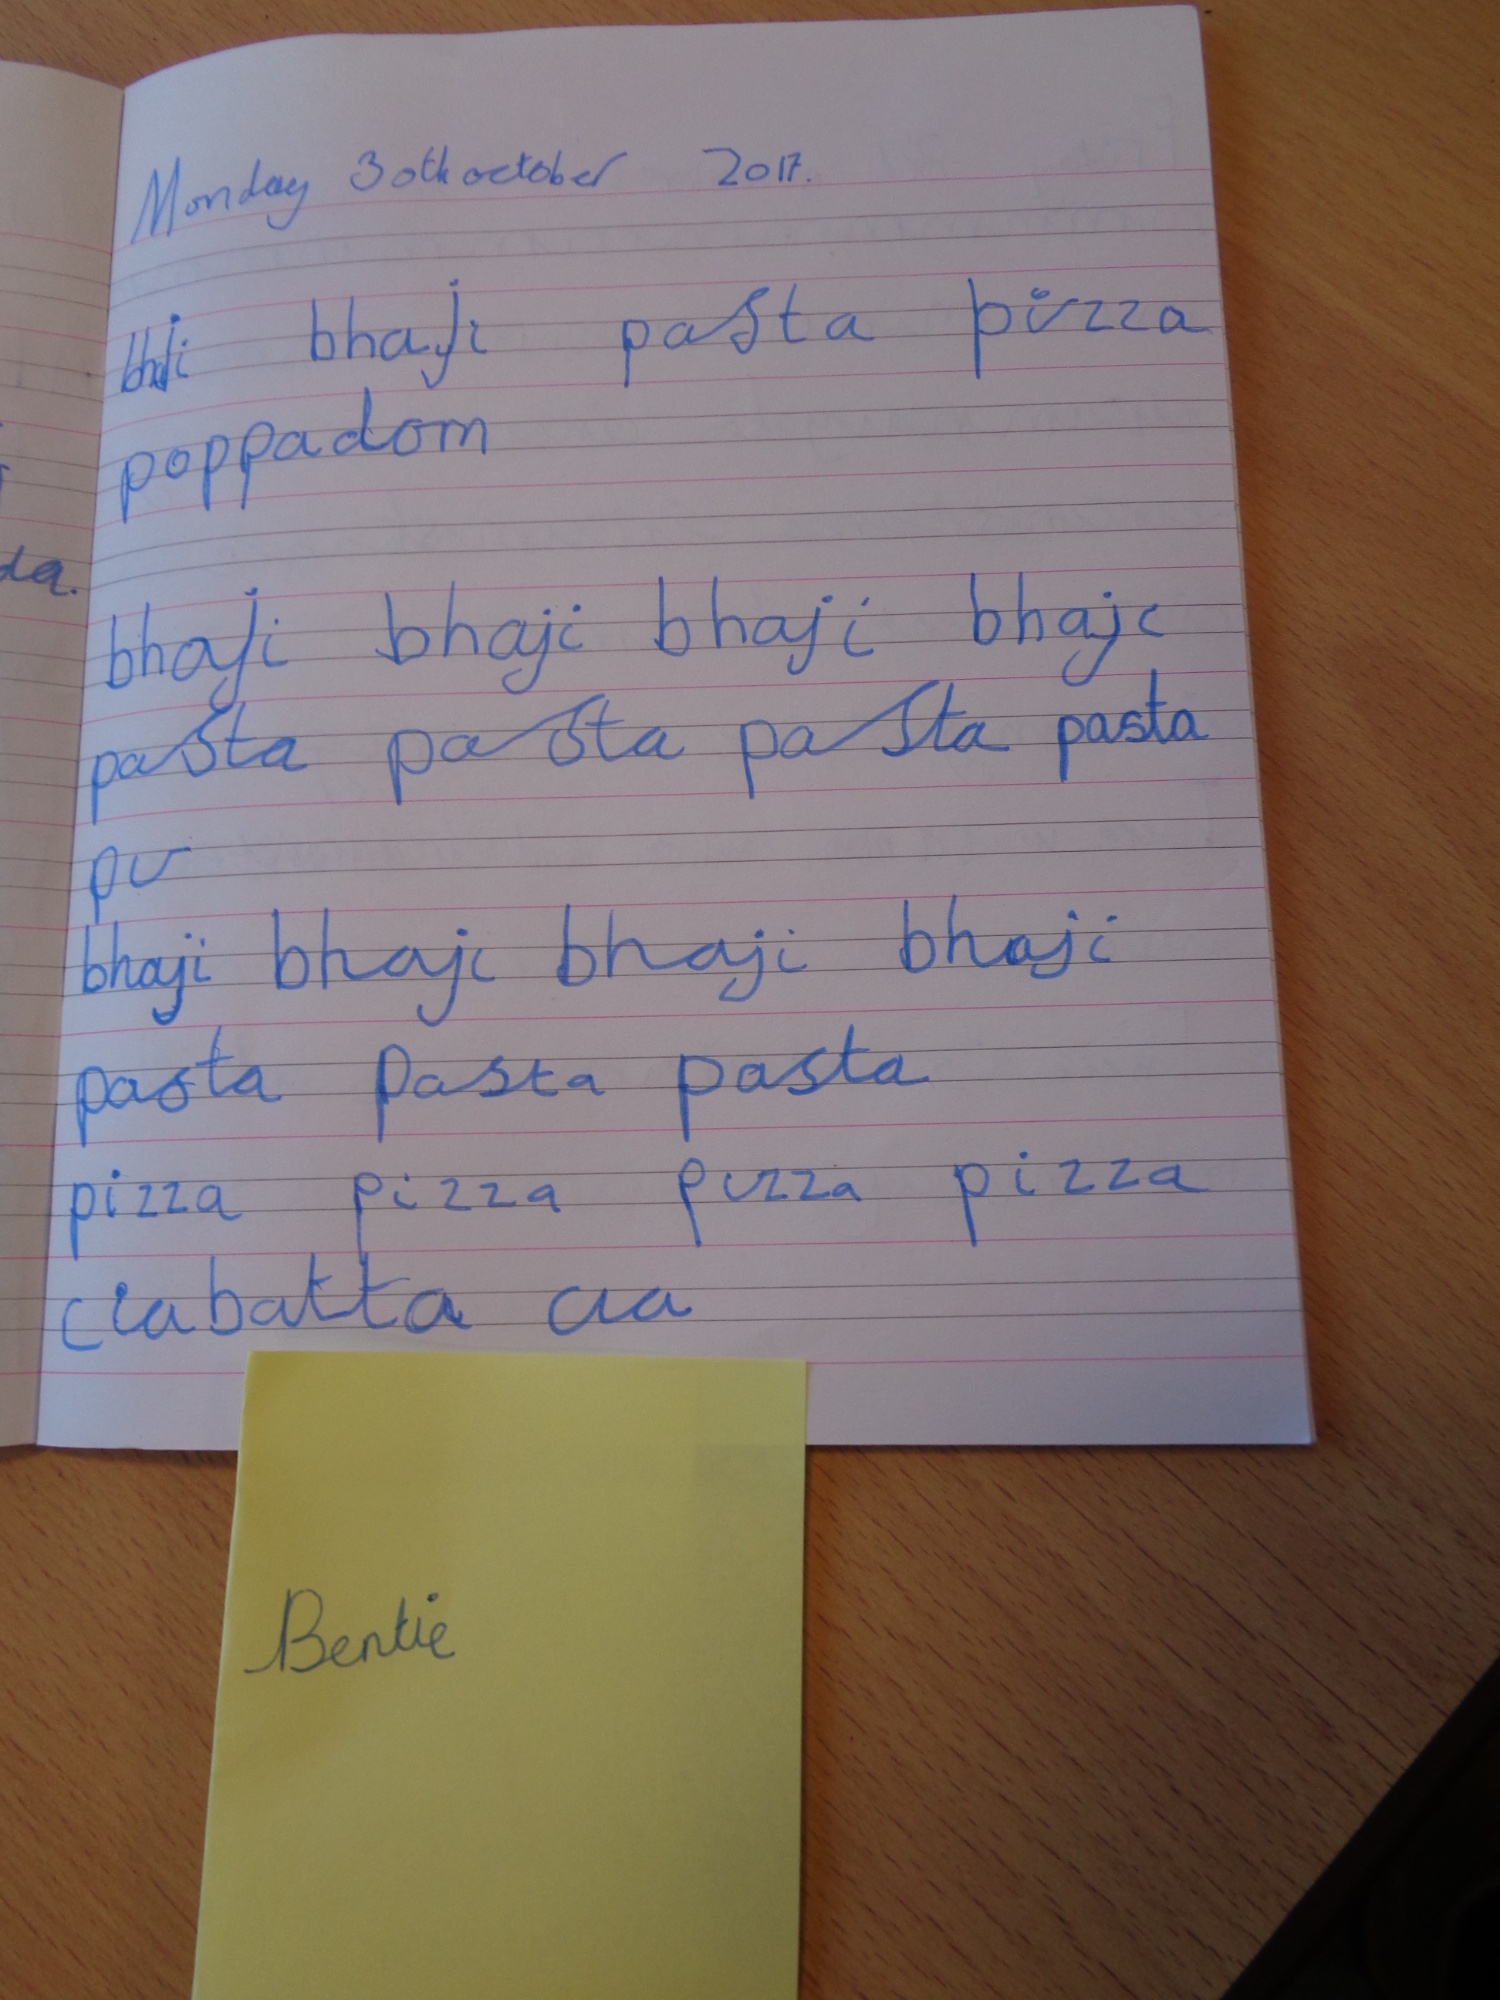 Monday 30th october 2017.
bhji bhaji pasta pizza
poppadom
da.
bhaji bhaji bhaji bhaji
pasta pasta pasta pasta
pi
bhaji bhaji bhaji bhaji
pasta pasta pasta
pizza pizza pizza pizza
ciabatta cia
Bentie